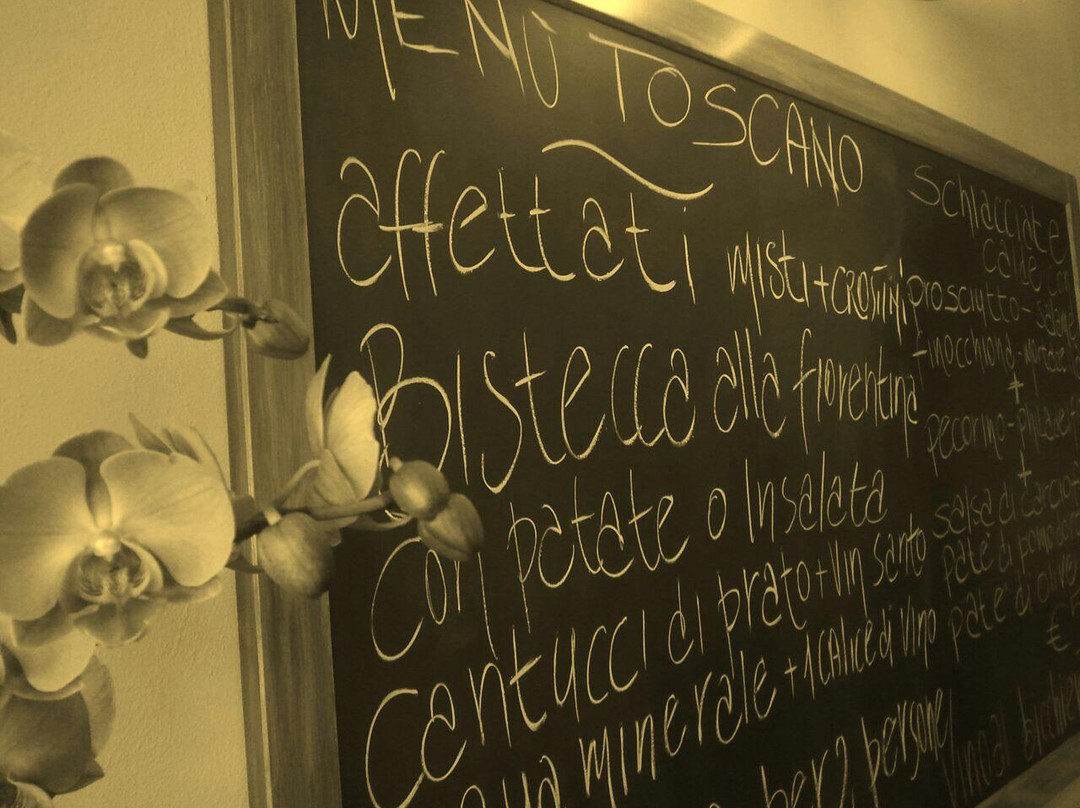 MENÙ TOSCANO
affettati misti + crostini
Bistecca alla fiorentina
con patate o Insalata
Cantucci di prato + vin santo
minerale + 1 calice di vino
per 2 persone
Schiacciate
calde con
prosciutto - salame
finocchiona -
+
pecorino -
+
salsa di
patè di
patè di olive
€